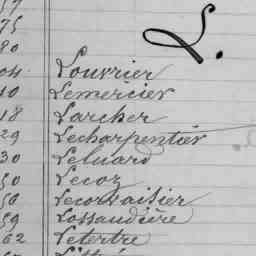 L.
75
80
04 Louvrier
10 Lemercier
18 Larcher
29 Lecharpentier
30 Leluard
50 Lecoz
56 Lecorvaisier
59 Lossaudière
62 Letertre